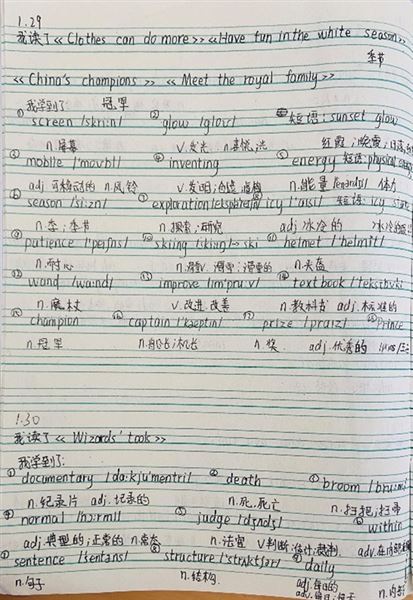 1.29
我读了《Clothes can do more》《Have fun in the white season》
季节
《China's champions》 《Meet the royal family》
我学到了 冠军
① screen /skriːn/ ② glow /gloʊ/ 短语: sunset glow
n.屏幕 v.发光 红霞;晚霞;日落
mobile /'moʊbl/ inventing energy 短语: physical energy
adj 可移动的 n.风铃 v.发明;创造 n.能量 体力
season /'siːzn/ exploration icy /'aɪsi/ 短语: icy
n.季;季节 n.探索;研究 adj 冰冷的
patience /'peɪʃns/ skiing /'skiːɪŋ/→ski helmet /'helmɪt/
n.耐心 n.滑雪 v.滑雪 n.头盔
wand /wɑːnd/ improve /ɪm'pruːv/ textbook
n.魔杖 v.改进.改善 n.教科书 adj.标准的
champion captain /'kæptɪn/ prize /praɪz/ Prince
n.冠军 n.船长;机长 n.奖 adj.优秀的
1.30
我读了《Wizards' took》
我学到了:
① documentary /dɑːkju'mentri/ ② death ③ broom
n.纪录片 adj.记录的 n.死.死亡 n.扫把;扫帚
④ normal /nɔːrml/ judge /dʒʌdʒ/ within
adj.典型的;正常的 n.常态 n.法官 v.判断;估计;裁判 adv.在内部
sentence /'sentəns/ structure /'strʌktʃər/ daily
n.句子 n.结构 adj.每日的